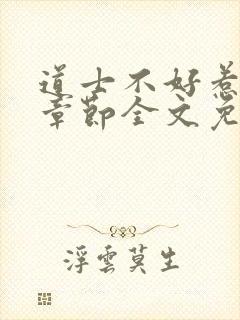 道士不好惹
章節全文免
浮雲莫生